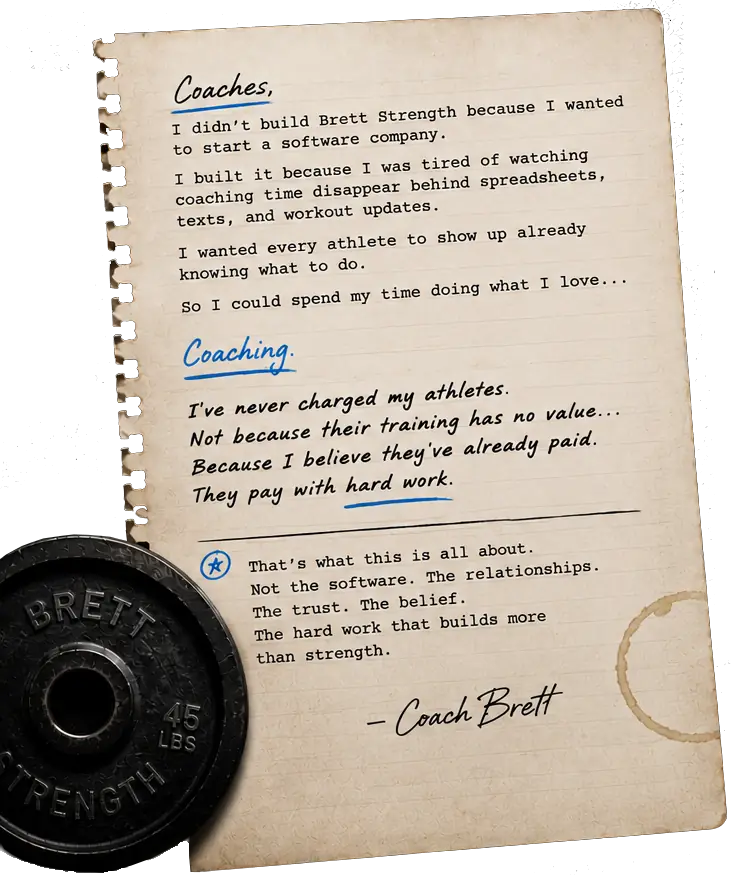 Coaches,
I didn't build Brett Strength because I wanted
to start a software company.
I built it because I was tired of watching
coaching time disappear behind spreadsheets,
texts, and workout updates.
I wanted every athlete to show up already
knowing what to do.
So I could spend my time doing what I love...
Coaching.
I've never charged my athletes.
Not because their training has no value...
Because I believe they've already paid.
They pay with hard work.
That's what this is all about.
Not the software. The relationships.
The trust. The belief.
The hard work that builds more
than strength.
– Coach Brett
BRETT
45
LBS
STRENGTH